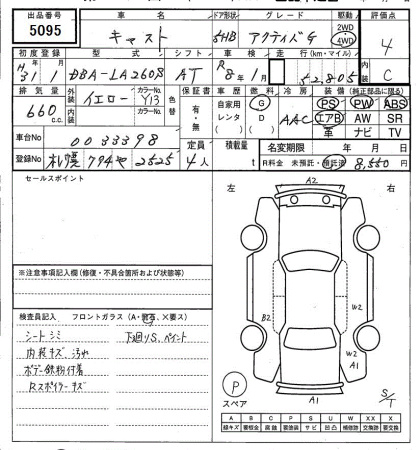 出品番号 車名 ドア形状 グレード 駆動 評価点
5095 キャスト 5HB アクティバG 2WD 4WD 4
初度登録 型式 シフト 車検 走行(km・マイル) 内装
H31/1 DBA-LA260S AT R8年1月 52,805 C
排気量 外装 カラーNo. 色替 保証書 車歴 燃料 冷房 装備(純正部品に限る)
660 c.c. イエロー Y13 有・無 自家用 レンタ G D AAC PS PW ABS
内装 カラーNo. エアB AW SR
車台No 0033398 革 ナビ TV
登録No 札幌 794や2525 定員 4人 積載量 t 名変期限 年 月 日
R料金 未預託・預託済 8,550円
セールスポイント
左 右
A2
※注意事項記入欄(修復・不具合箇所および状態等)
B2 W2
検査員記入 フロントガラス(A・飛石・X要ス)
シートシミ 下廻りS、ペイント
内装キズ、汚れ
ボデー鉄粉付着
Rスポイラーキズ
W2
A1
P
スペア
A1
S/T
A B C P S U W X XX
線キズ 要板金 腐蝕 要塗装 サビ 凹凸 補修跡 交換跡 要交換